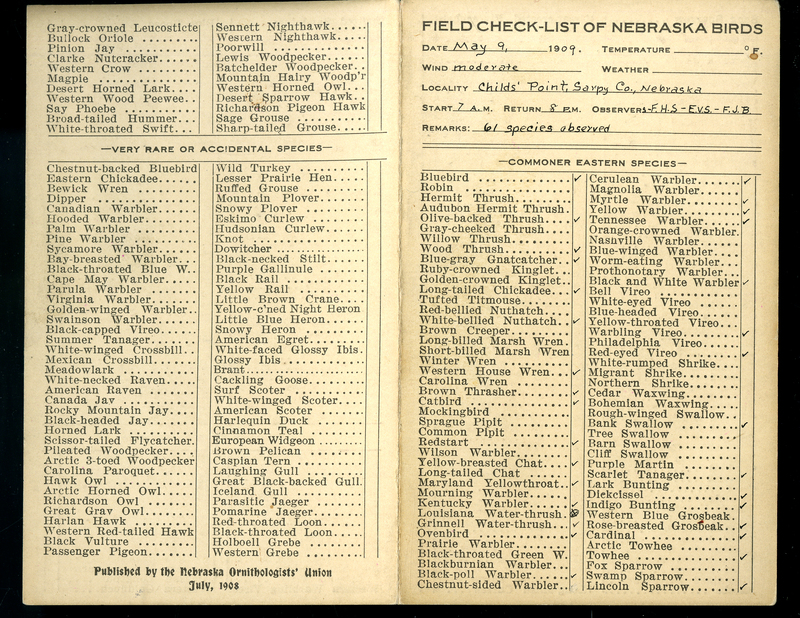 Gray-crowned Leucosticte
Bullock Oriole
Pinion Jay
Clarke Nutcracker
Western Crow
Magpie
Desert Horned Lark
Western Wood Peewee
Say Phoebe
Broad-tailed Hummer
White-throated Swift
Sennett Nighthawk
Western Nighthawk
Poorwill
Lewis Woodpecker
Batchelder Woodpecker
Mountain Hairy Woodp'r
Western Horned Owl
Desert Sparrow Hawk
Richardson Pigeon Hawk
Sage Grouse
Sharp-tailed Grouse
—VERY RARE OR ACCIDENTAL SPECIES—
Chestnut-backed Bluebird
Eastern Chickadee
Bewick Wren
Dipper
Canadian Warbler
Hooded Warbler
Palm Warbler
Pine Warbler
Sycamore Warbler
Bay-breasted Warbler
Black-throated Blue W.
Cape May Warbler
Parula Warbler
Virginia Warbler
Golden-winged Warbler
Swainson Warbler
Black-capped Vireo
Summer Tanager
White-winged Crossbill
Mexican Crossbill
Meadowlark
White-necked Raven
American Raven
Canada Jay
Rocky Mountain Jay
Black-headed Jay
Horned Lark
Scissor-tailed Flycatcher
Pileated Woodpecker
Arctic 3-toed Woodpecker
Carolina Paroquet
Hawk Owl
Arctic Horned Owl
Richardson Owl
Great Gray Owl
Harlan Hawk
Western Red-tailed Hawk
Black Vulture
Passenger Pigeon
Wild Turkey
Lesser Prairie Hen
Ruffed Grouse
Mountain Plover
Snowy Plover
Eskimo Curlew
Hudsonian Curlew
Knot
Dowitcher
Black-necked Stilt
Purple Gallinule
Black Rail
Yellow Rail
Little Brown Crane
Yellow-c'ned Night Heron
Little Blue Heron
Snowy Heron
American Egret
White-faced Glossy Ibis
Glossy Ibis
Brant
Cackling Goose
Surf Scoter
White-winged Scoter
American Scoter
Harlequin Duck
Cinnamon Teal
European Widgeon
Brown Pelican
Caspian Tern
Laughing Gull
Great Black-backed Gull
Iceland Gull
Parasitic Jaeger
Pomarine Jaeger
Red-throated Loon
Black-throated Loon
Holboell Grebe
Western Grebe
Published by the Nebraska Ornithologists' Union
July, 1908
FIELD CHECK-LIST OF NEBRASKA BIRDS
DATE May 9, 1909. TEMPERATURE °F.
WIND moderate WEATHER
LOCALITY Childs' Point, Sarpy Co., Nebraska
START 7 A.M. RETURN 8 P.M. OBSERVERS-F.H.S-E.V.S.-F.J.B.
REMARKS: 61 species observed
—COMMONER EASTERN SPECIES—
Bluebird ✓
Robin
Hermit Thrush
Audubon Hermit Thrush
Olive-backed Thrush ✓
Gray-cheeked Thrush
Willow Thrush
Wood Thrush ✓
Blue-gray Gnatcatcher ✓
Ruby-crowned Kinglet
Golden-crowned Kinglet
Long-tailed Chickadee ✓
Tufted Titmouse
Red-bellied Nuthatch
White-bellied Nuthatch ✓
Brown Creeper
Long-billed Marsh Wren
Short-billed Marsh Wren
Winter Wren
Western House Wren ✓
Carolina Wren
Brown Thrasher ✓
Catbird ✓
Mockingbird
Sprague Pipit
Common Pipit
Redstart ✓
Wilson Warbler
Yellow-breasted Chat ✓
Long-tailed Chat
Maryland Yellowthroat ✓
Mourning Warbler
Kentucky Warbler ✓
Louisiana Water-thrush
Grinnell Water-thrush ✓
Ovenbird ✓
Prairie Warbler
Black-throated Green W.
Blackburnian Warbler
Black-poll Warbler ✓
Chestnut-sided Warbler
Cerulean Warbler ✓
Magnolia Warbler
Myrtle Warbler ✓
Yellow Warbler ✓
Tennessee Warbler ✓
Orange-crowned Warbler
Nashville Warbler
Blue-winged Warbler
Worm-eating Warbler
Prothonotary Warbler
Black and White Warbler ✓
Bell Vireo
White-eyed Vireo
Blue-headed Vireo
Yellow-throated Vireo
Warbling Vireo ✓
Philadelphia Vireo
Red-eyed Vireo ✓
White-rumped Shrike
Migrant Shrike
Northern Shrike
Cedar Waxwing
Bohemian Waxwing
Rough-winged Swallow
Bank Swallow ✓
Tree Swallow
Barn Swallow
Cliff Swallow
Purple Martin
Scarlet Tanager ✓
Lark Bunting
Dickcissel ✓
Indigo Bunting ✓
Western Blue Grosbeak
Rose-breasted Grosbeak ✓
Cardinal ✓
Arctic Towhee
Towhee ✓
Fox Sparrow
Swamp Sparrow
Lincoln Sparrow ✓